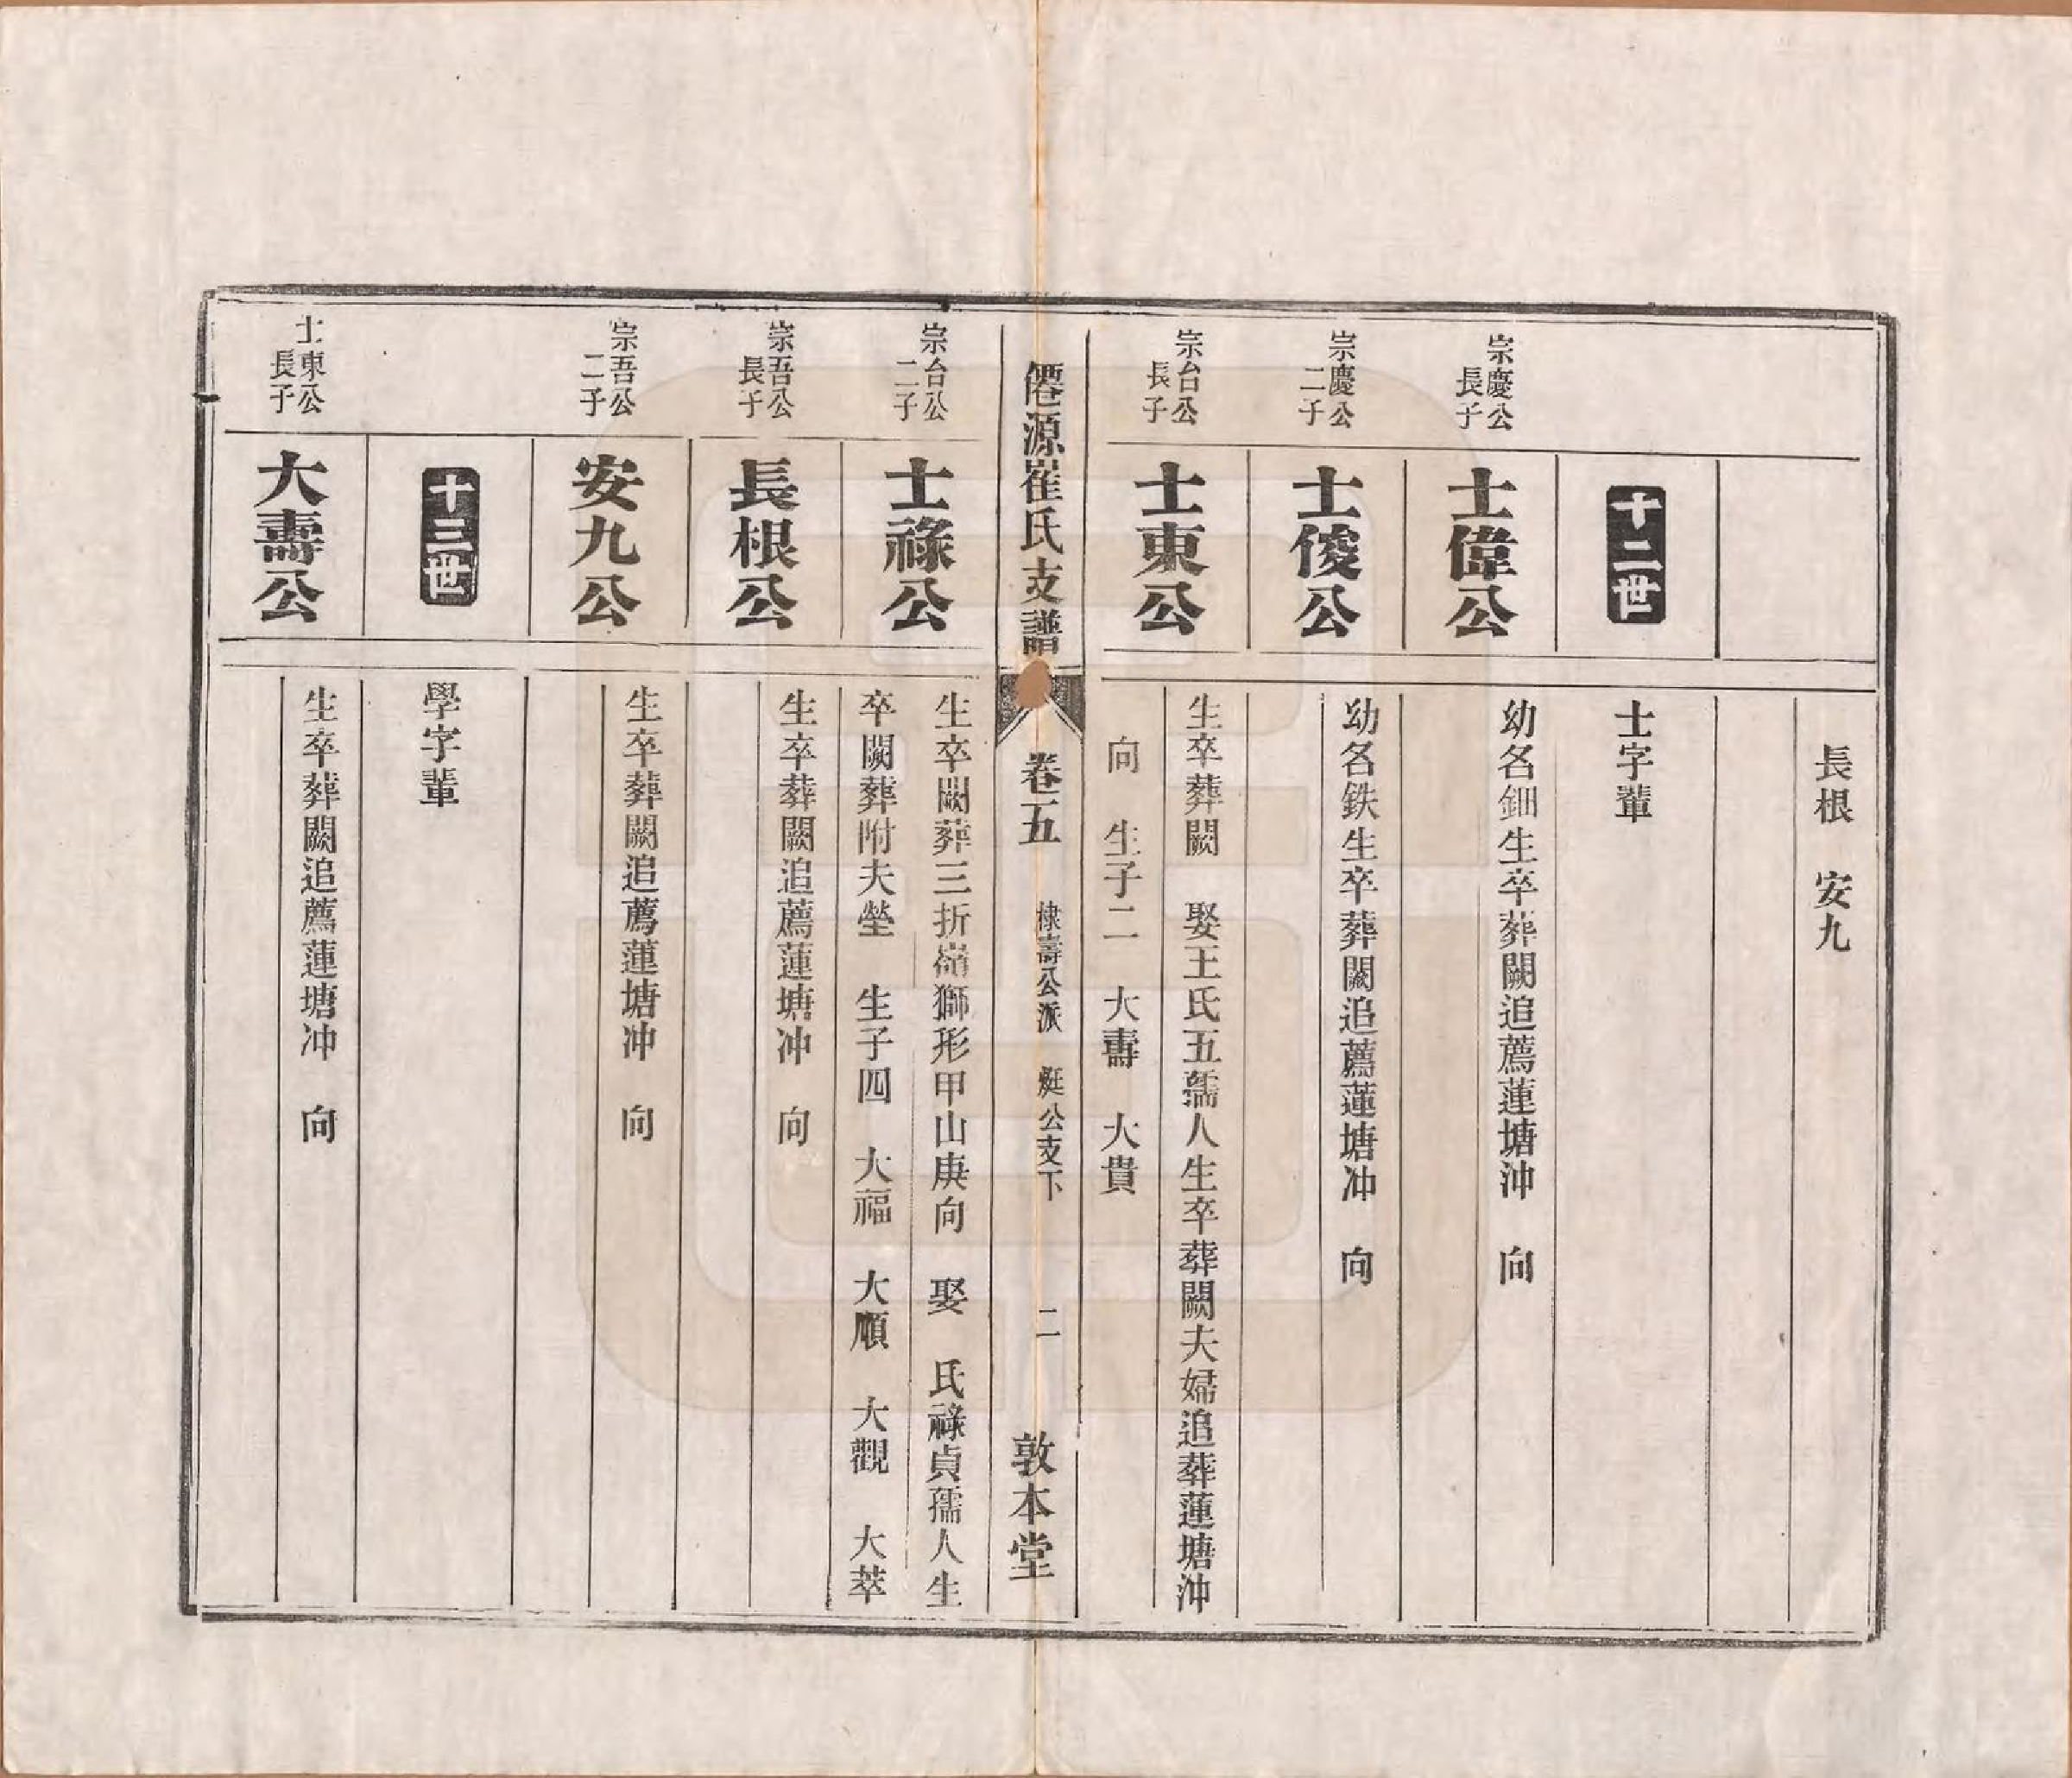 長根　安九
十二世
士字輩
宗慶公
長子
士偉公
幼名鈿生卒葬闕追薦蓮塘沖　向
宗慶公
二子
士俊公
幼名鉄生卒葬闕追薦蓮塘冲　向
宗台公
長子
士東公
生卒葬闕　娶王氏五孺人生卒葬闕夫婦追葬蓮塘沖
向　生子二　大壽　大貴
僊源崔氏支譜
卷五　棣壽公派　艇公支下　二　敦本堂
宗台公
二子
士祿公
生卒闕葬三折嶺獅形甲山庚向　娶　氏祿貞孺人生
卒闕葬附夫塋　生子四　大福　大順　大觀　大萃
宗吾公
長子
長根公
生卒葬闕追薦蓮塘冲　向
宗吾公
二子
安九公
生卒葬闕追薦蓮塘冲　向
十三世
學字輩
士東公
長子
大壽公
生卒葬闕追薦蓮塘冲　向